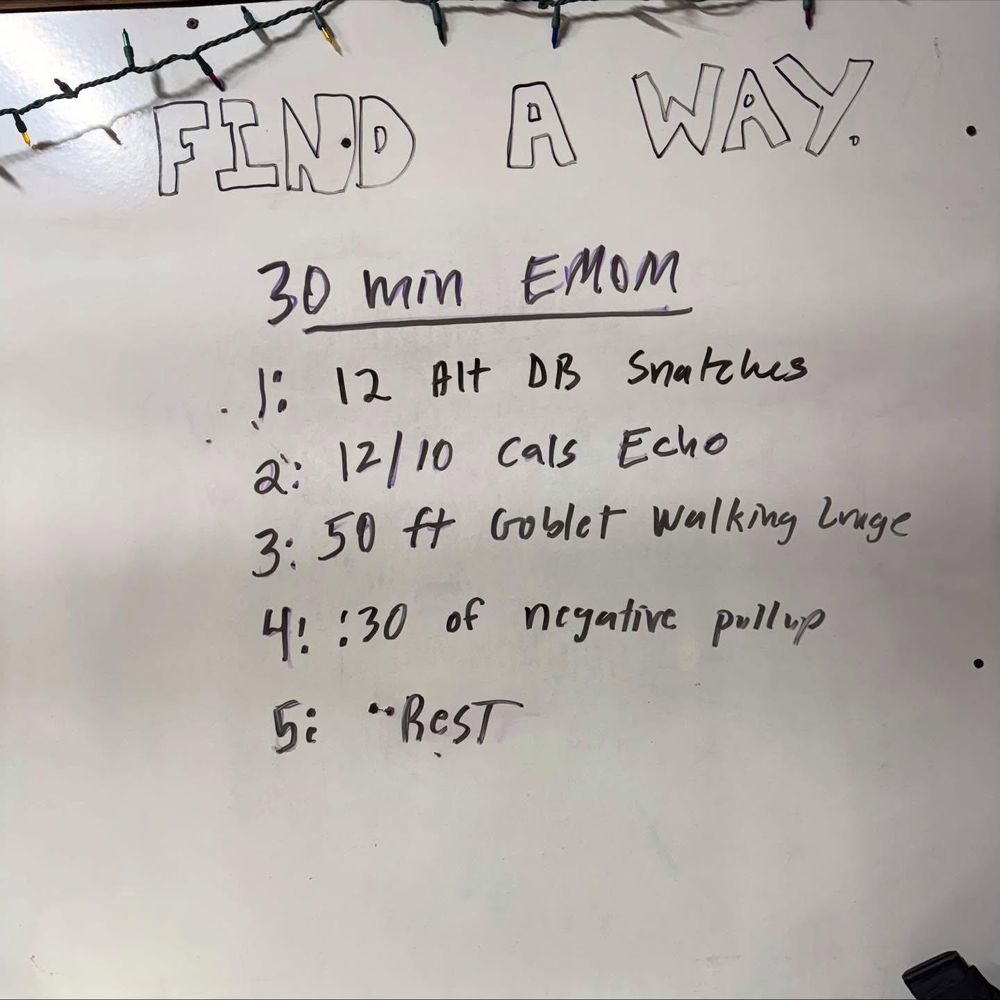 FIND A WAY.
30 min EMOM
1: 12 Alt DB Snatches
2: 12/10 Cals Echo
3: 50 ft Goblet Walking Lunge
4: :30 of negative pullup
5: Rest